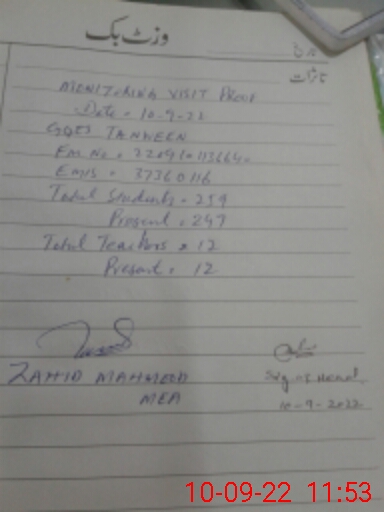 وزٹ بک
تاریخ
تاثرات
MONITORING VISIT PROOF
Date = 10-9-22
GGES TANWEEN
EMIS = 37360116
Total Students = 259
Present = 247
Total Teachers = 12
Present = 12
ZAHID MAHMOOD
MEA
Sig of Head
10-9-2022
10-09-22 11:53